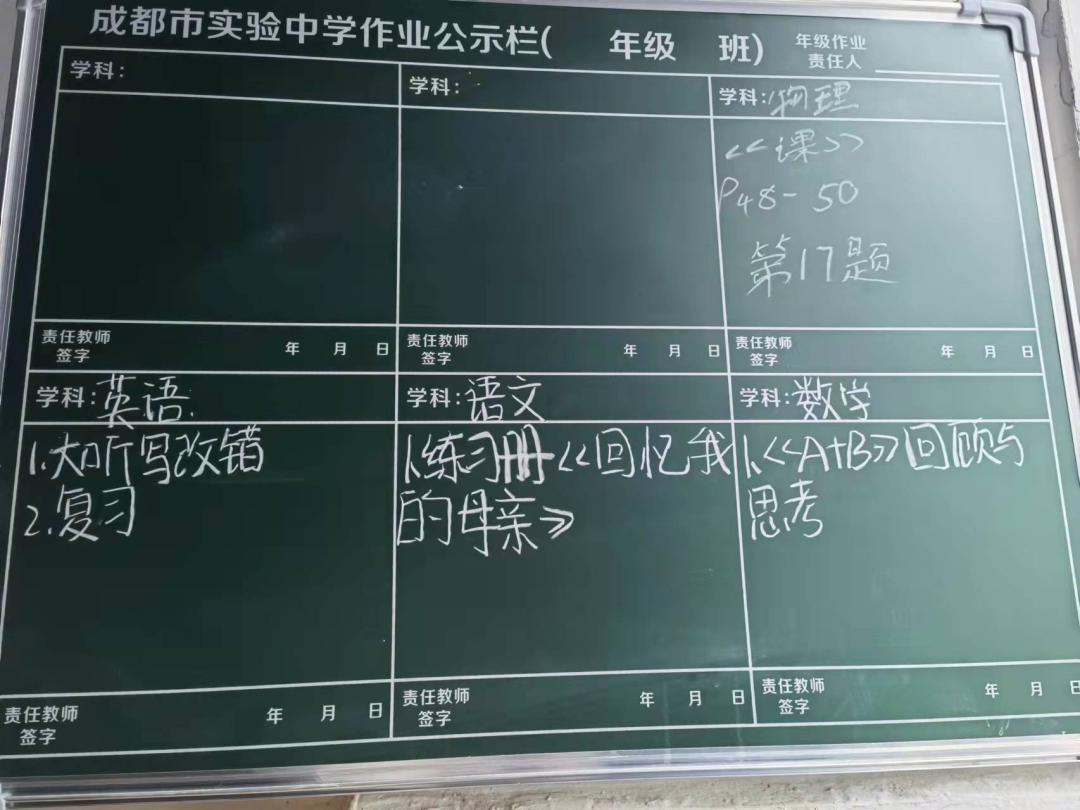 成都市实验中学作业公示栏(　　年级　　班)
年级作业
责任人
学科:
学科:
学科:物理
<<课>>
P48-50
第17题
责任教师
签字
年 月 日
责任教师
签字
年 月 日
责任教师
签字
年 月 日
学科:英语
1.大听写改错
2.复习
学科:语文
1.练习册<<回忆我
的母亲>>
学科:数学
1.<<A+B>>回顾与
思考
责任教师
签字
年 月 日
责任教师
签字
年 月 日
责任教师
签字
年 月 日